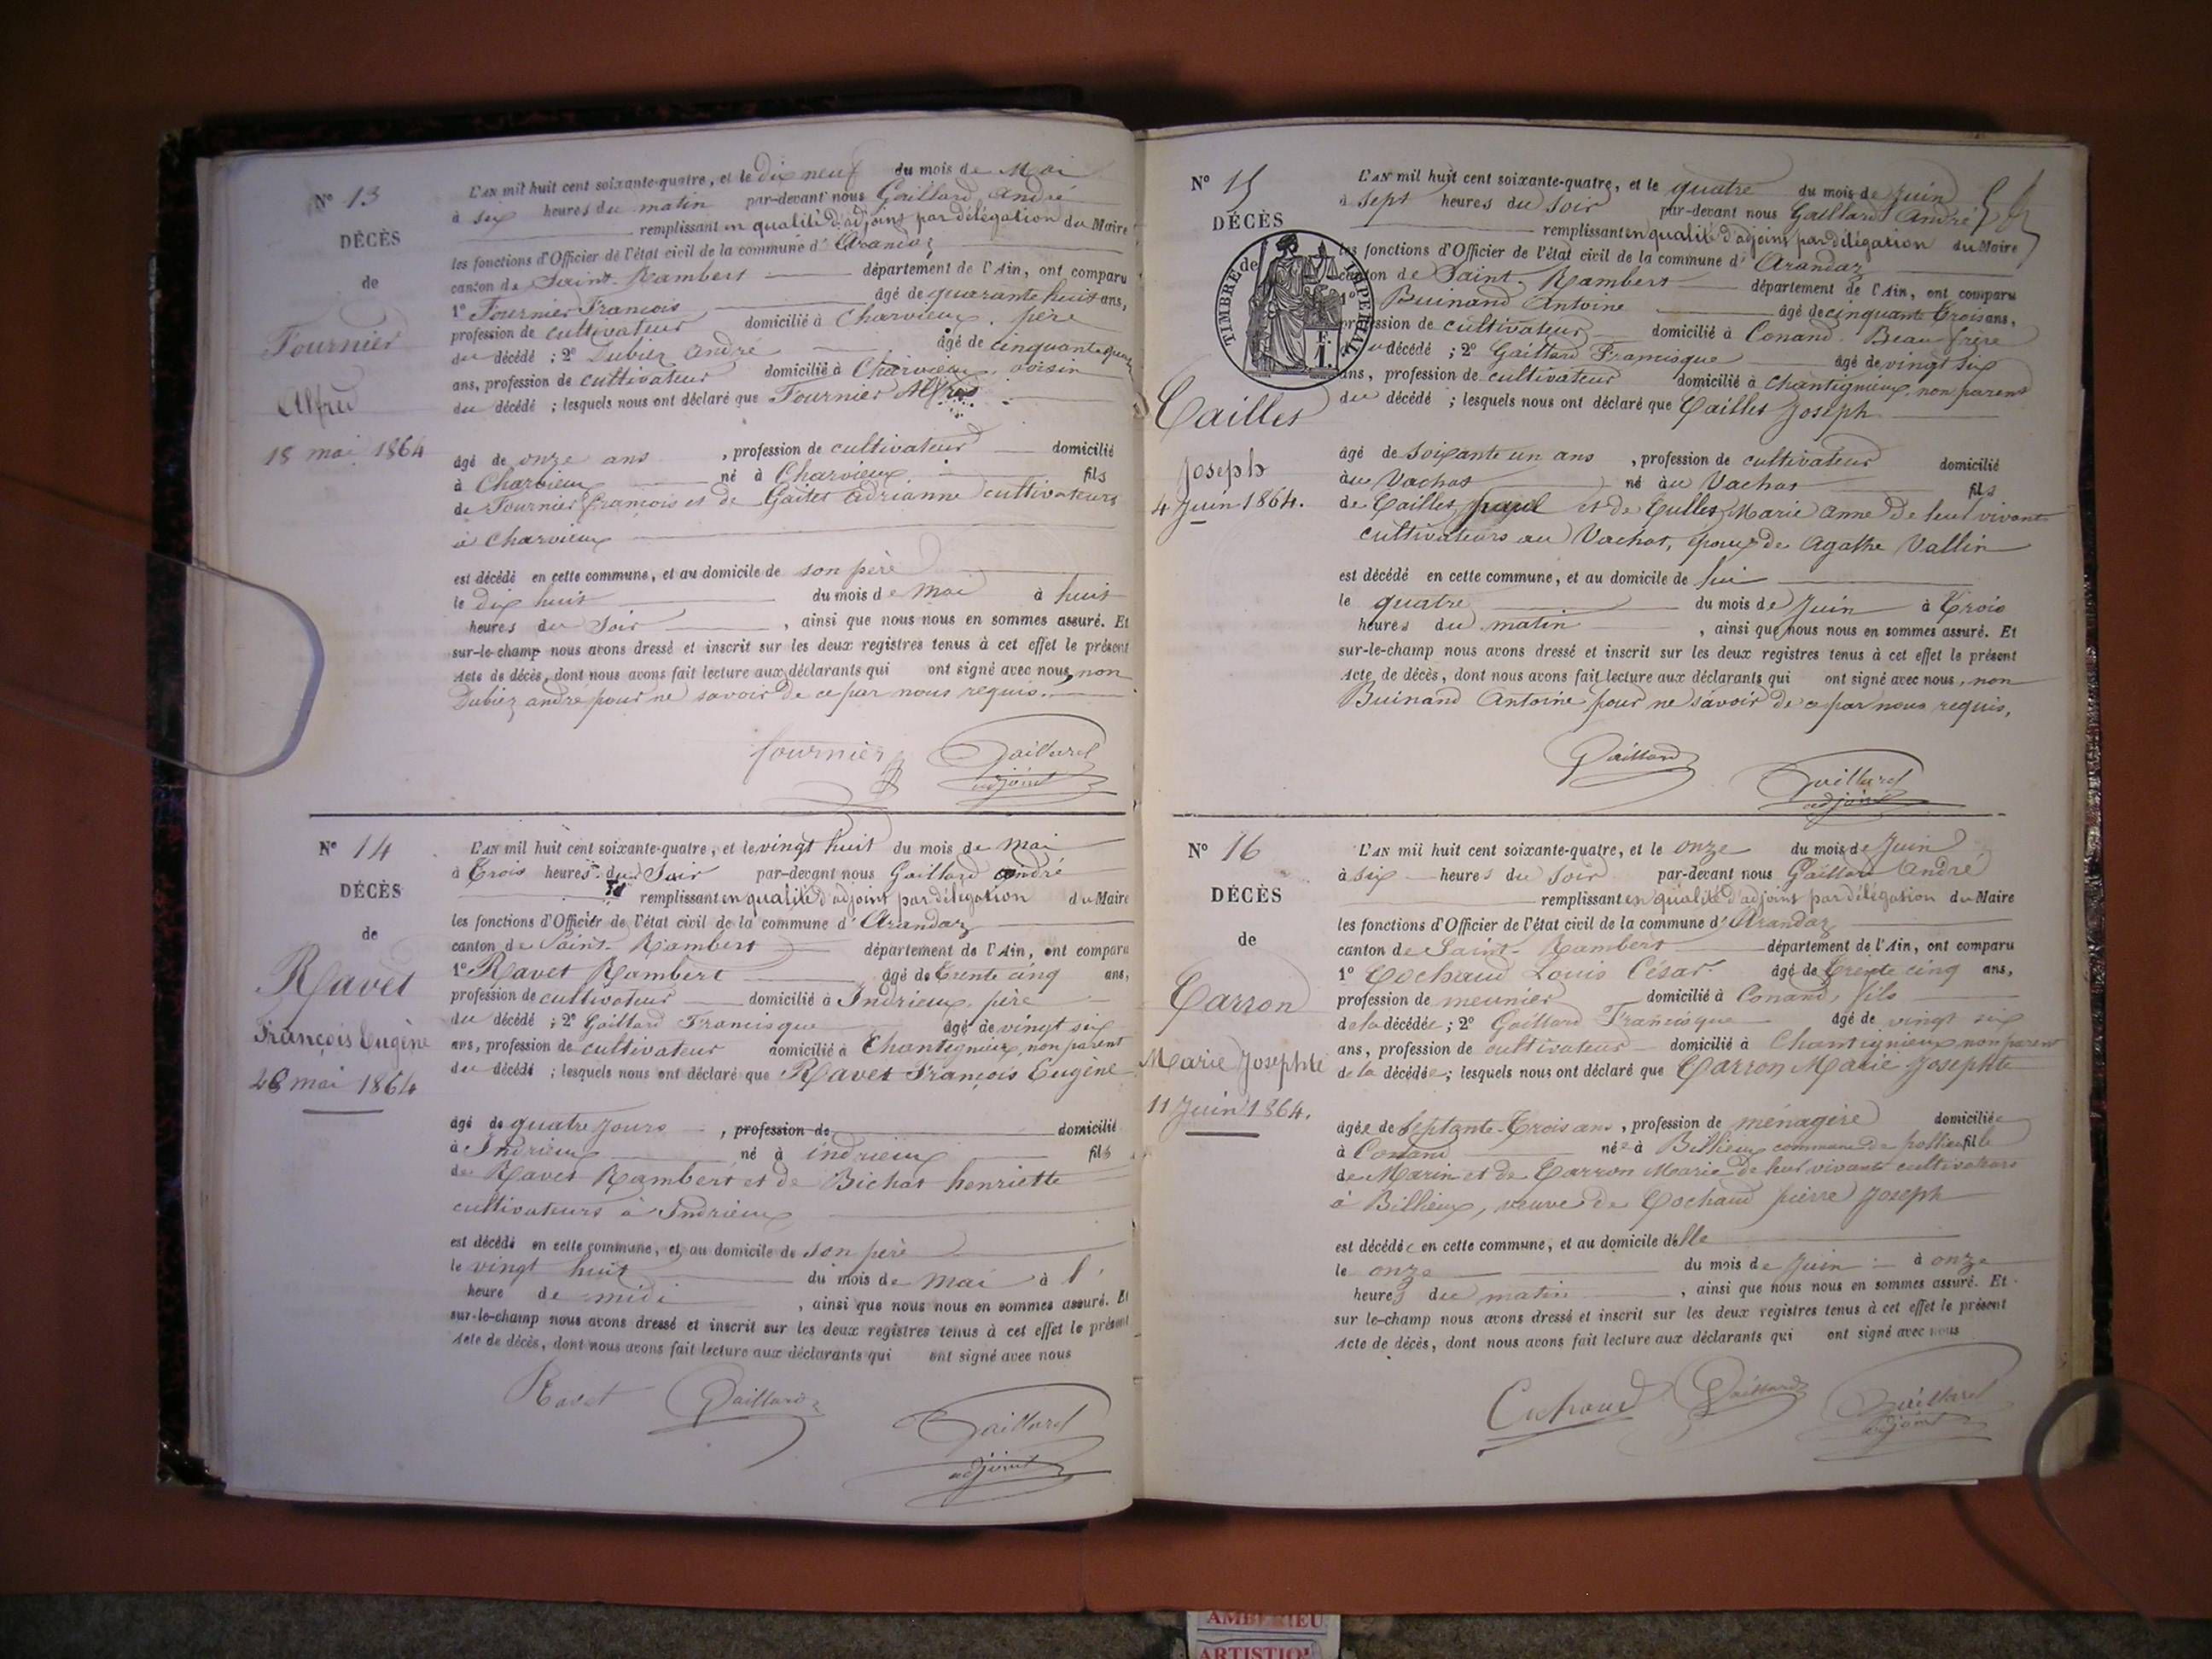 N° 13
DÉCÈS
de
Fournier
Alfred
18 mai 1864
L'AN mil huit cent soixante-quatre, et le dix neuf du mois de Mai
à six heures du matin par-devant nous Gaillard André
remplissant en qualité d'adjoint par délégation du Maire
les fonctions d'Officier de l'état civil de la commune d'Arandaz
canton de Saint-Rambert département de l'Ain, ont comparu
1° Fournier François âgé de quarante huit ans,
profession de cultivateur domicilié à Charvieux, père
du décédé ; 2° Dubiez André âgé de cinquante quatre
ans, profession de cultivateur domicilié à Charvieux, voisin
du décédé ; lesquels nous ont déclaré que Fournier Alfred
âgé de onze ans , profession de cultivateur domicilié
à Charvieux né à Charvieux fils
de Fournier François et de Goitet Adrianne cultivateurs
à Charvieux
est décédé en cette commune, et au domicile de son père
le dix huit du mois de Mai à huit
heures du Soir , ainsi que nous nous en sommes assuré. Et
sur-le-champ nous avons dressé et inscrit sur les deux registres tenus à cet effet le présent
Acte de décès, dont nous avons fait lecture aux déclarants qui ont signé avec nous, non
Dubiez andré pour ne savoir de ce par nous requis.
fournier Gaillard
adjoint
N° 14
DÉCÈS
de
Ravet
François Eugène
28 mai 1864
L'AN mil huit cent soixante-quatre, et le vingt huit du mois de Mai
à Trois heures du Soir par-devant nous Gaillard andré
remplissant en qualité d'adjoint par délégation du Maire
les fonctions d'Officier de l'état civil de la commune d'Arandaz
canton de Saint-Rambert département de l'Ain, ont comparu
1° Ravet Rambert âgé de Trente cinq ans,
profession de cultivateur domicilié à Indrieux, père
du décédé ; 2° Gaillard Francisque âgé de vingt six
ans, profession de cultivateur domicilié à Chantignieux, non parent
du décédé ; lesquels nous ont déclaré que Ravet François Eugène
âgé de quatre jours , profession de domicilié
à Indrieux né à indrieux fils
de Ravet Rambert et de Bichat henriette
cultivateurs à Indrieux
est décédé en cette commune, et au domicile de son père
le vingt huit du mois de Mai à l'
heure de midi , ainsi que nous nous en sommes assuré. Et
sur-le-champ nous avons dressé et inscrit sur les deux registres tenus à cet effet le présent
Acte de décès, dont nous avons fait lecture aux déclarants qui ont signé avec nous
Ravet Gaillard Gaillard
adjoint
N° 15
DÉCÈS
de
TIMBRE IMPERIAL
1 F.
Cailles
Joseph
4 Juin 1864.
L'AN mil huit cent soixante-quatre, et le quatre du mois de Juin
à sept heures du Soir par-devant nous Gaillard André
remplissant en qualité d'adjoint par délégation du Maire
les fonctions d'Officier de l'état civil de la commune d'Arandaz
canton de Saint-Rambert département de l'Ain, ont comparu
1° Buinand Antoine âgé de cinquante Trois ans,
profession de cultivateur domicilié à Conand, Beau frère
du décédé ; 2° Gaillard Francisque âgé de vingt six
ans, profession de cultivateur domicilié à Chantignieux, non parent
du décédé ; lesquels nous ont déclaré que Cailles Joseph
âgé de soixante un ans , profession de cultivateur domicilié
au Vachat né au Vachat fils
de Cailles et de Cullet Marie anne de leur vivant
cultivateurs au Vachat, époux de Agathe Vallin
est décédé en cette commune, et au domicile de lui
le quatre du mois de Juin à Trois
heures du matin , ainsi que nous nous en sommes assuré. Et
sur-le-champ nous avons dressé et inscrit sur les deux registres tenus à cet effet le présent
Acte de décès, dont nous avons fait lecture aux déclarants qui ont signé avec nous, non
Buinand Antoine pour ne savoir de ce par nous requis,
Gaillard Gaillard
adjoint
N° 16
DÉCÈS
de
Carron
Marie Josephte
11 Juin 1864.
L'AN mil huit cent soixante-quatre, et le onze du mois de Juin
à six heures du Soir par-devant nous Gaillard André
remplissant en qualité d'adjoint par délégation du Maire
les fonctions d'Officier de l'état civil de la commune d'Arandaz
canton de Saint-Rambert département de l'Ain, ont comparu
1° Cochaud Louis César âgé de Trente cinq ans,
profession de meunier domicilié à Conand, fils
de la décédée ; 2° Gaillard Francisque âgé de vingt six
ans, profession de cultivateur domicilié à Chantignieux non parent
de la décédée ; lesquels nous ont déclaré que Carron Marie Josephte
âgée de Septante-Trois ans , profession de ménagère domiciliée
à Conand née à Billieux commune de fille
de Marin et de Carron Marie de leur vivant cultivateurs
à Billieux, veuve de Cochaud pierre Joseph
est décédée en cette commune, et au domicile d'elle
le onze du mois de Juin à onze
heures du matin , ainsi que nous nous en sommes assuré. Et
sur le-champ nous avons dressé et inscrit sur les deux registres tenus à cet effet le présent
Acte de décès, dont nous avons fait lecture aux déclarants qui ont signé avec nous
Cochaud Gaillard Gaillard
adjoint
AMBERIEU
ARTISTIQ